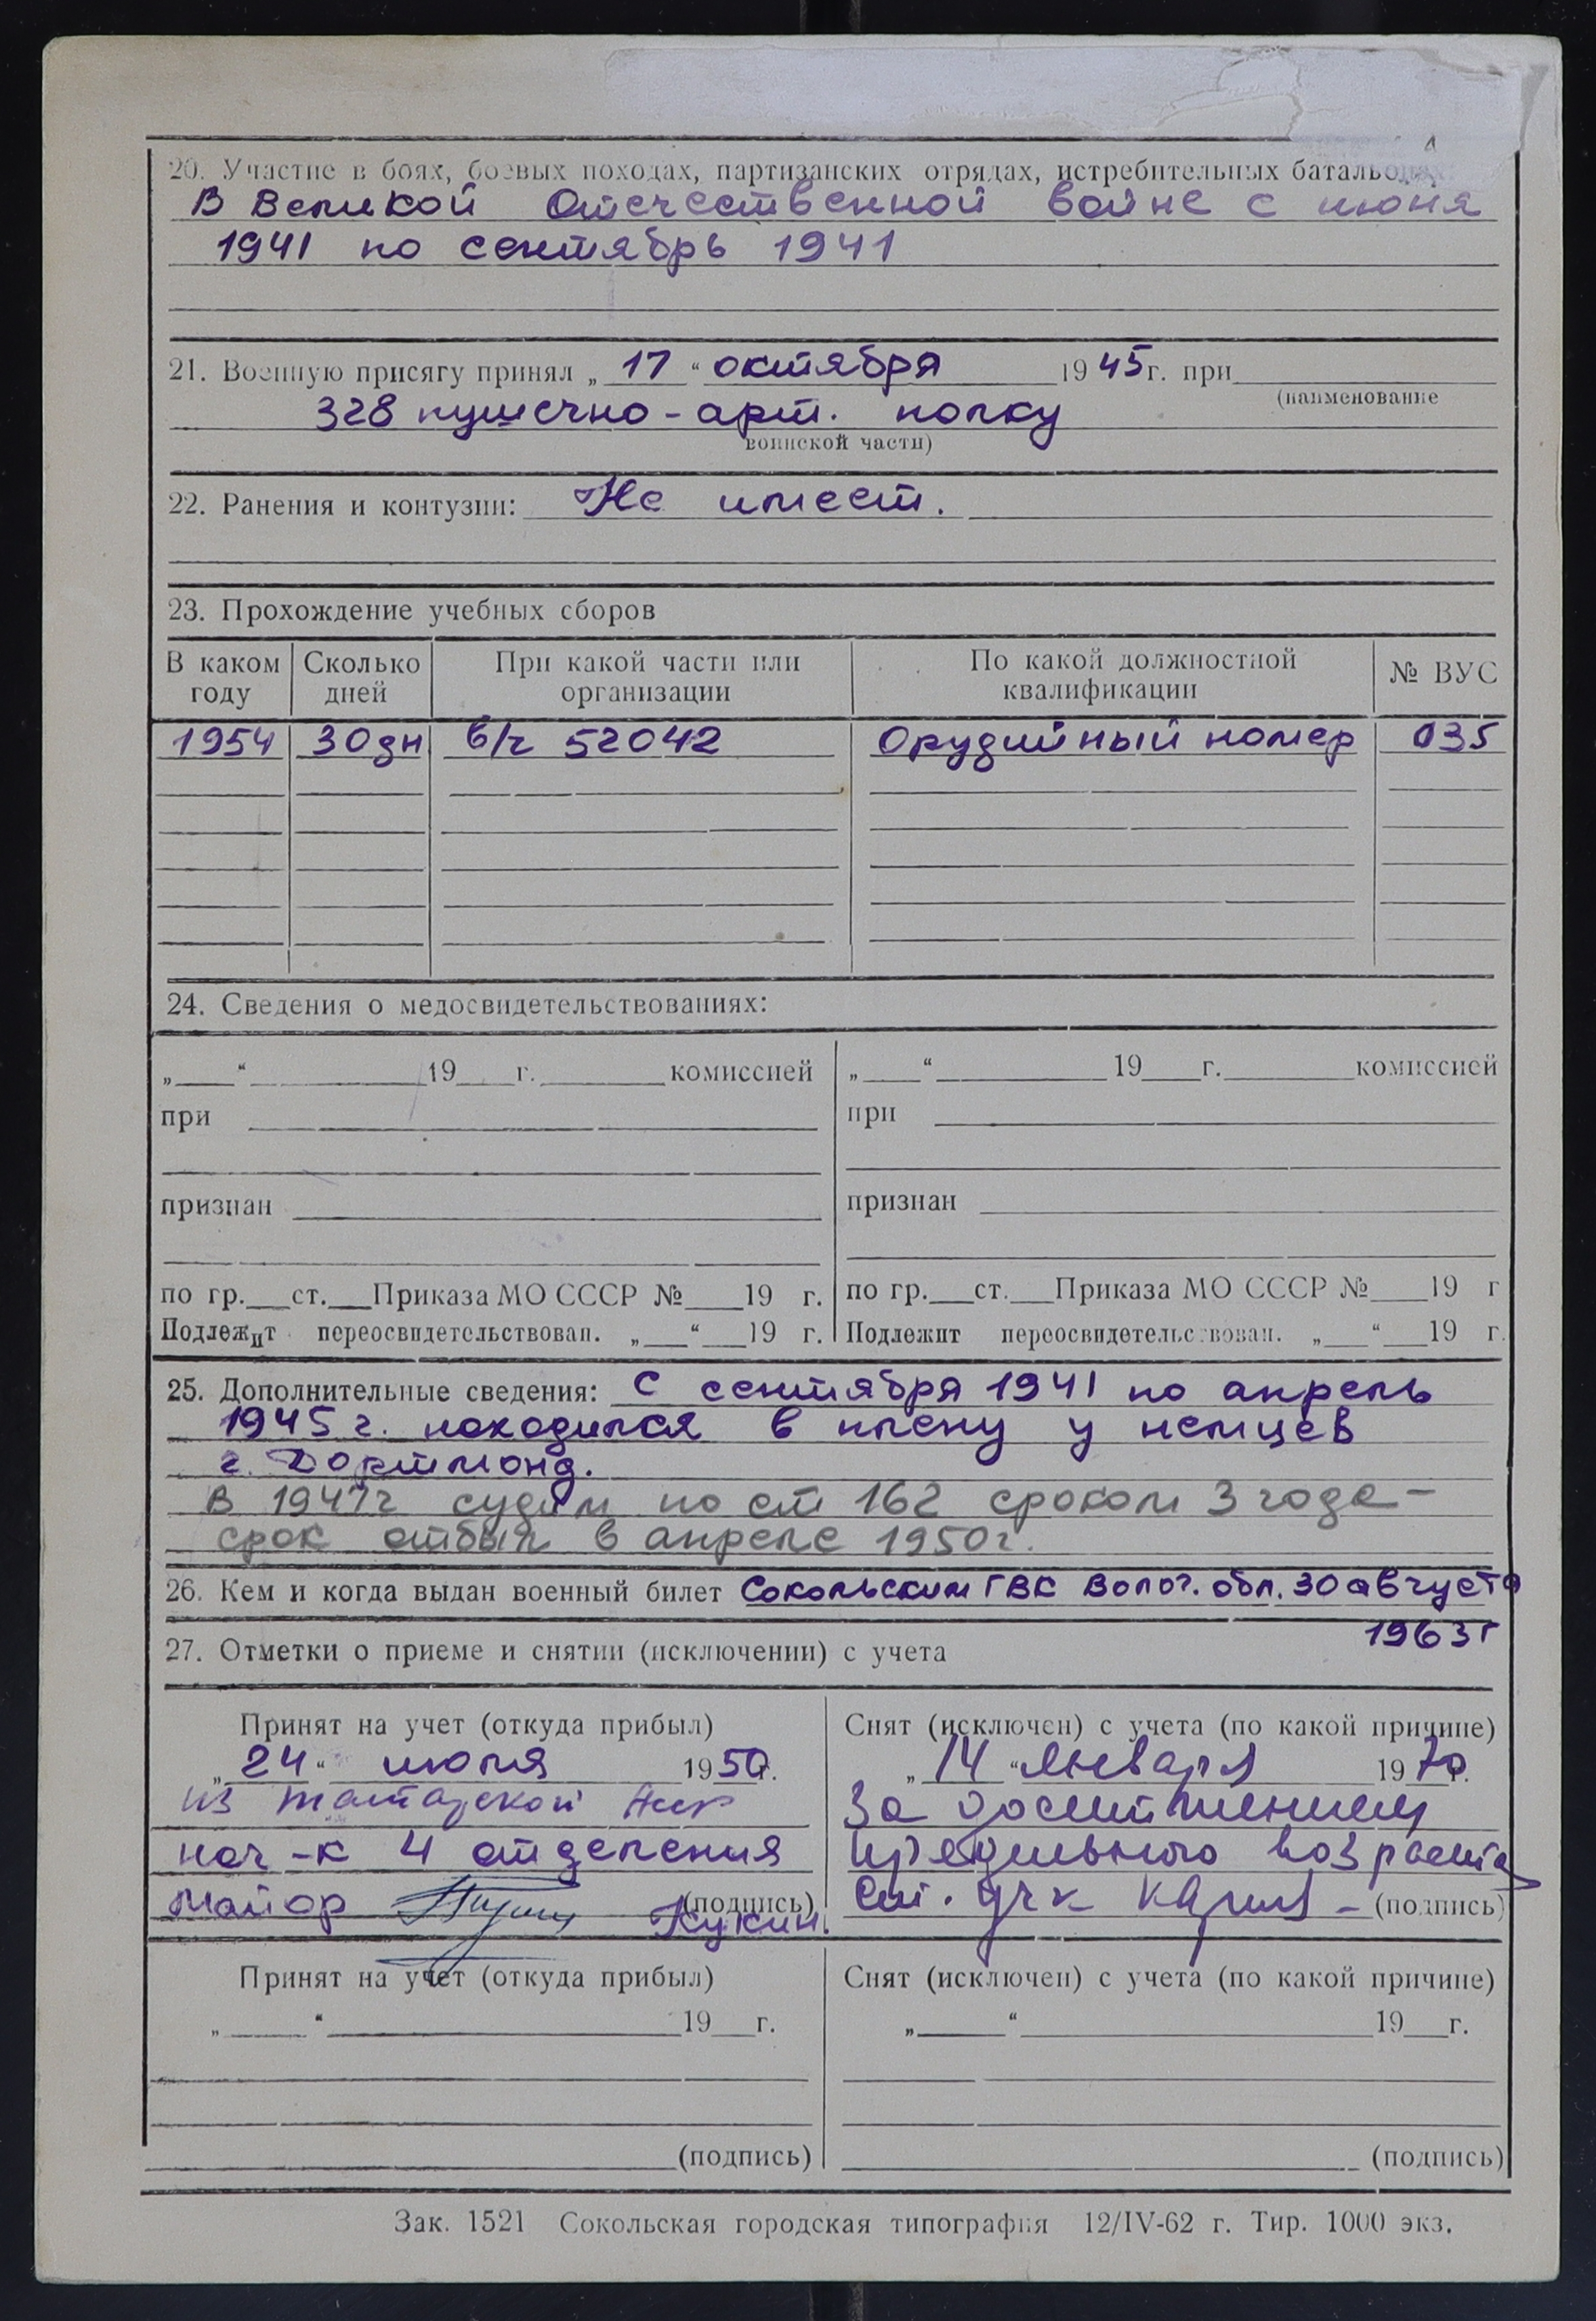 20. Участие в боях, боевых походах, партизанских отрядах, истребительных батальонах:
В Великой Отечественной войне с июня
1941 по сентябрь 1941
21. Военную присягу принял „17“ октября 1945г. при
(наименование
328 пушечно-арт. полку
воинской части)
22. Ранения и контузии: Не имеет.
23. Прохождение учебных сборов
В каком году Сколько дней При какой части или организации По какой должностной квалификации № ВУС
1954 30дн в/ч 52042 Орудийный номер 035
24. Сведения о медосвидетельствованиях:
„ “ 19 г. комиссией „ “ 19 г. комиссией
при при
признан признан
по гр. ст. Приказа МО СССР № 19 г. по гр. ст. Приказа МО СССР № 19 г
Подлежит переосвидетельствован. „ “ 19 г. Подлежит переосвидетельствован. „ “ 19 г.
25. Дополнительные сведения: С сентября 1941 по апрель
1945 г. находился в плену у немцев
г. Дортмонд.
В 1947г судим по ст 162 сроком 3 года-
срок отбыл в апреле 1950г.
26. Кем и когда выдан военный билет Сокольским ГВК Волог. обл. 30 августа
1963г
27. Отметки о приеме и снятии (исключении) с учета
Принят на учет (откуда прибыл) Снят (исключен) с учета (по какой причине)
„24“ июля 1950г. „14“ января 1970г.
из Татарской Асср За достижением
нач-к 4 отделения предельного возраста
майор (подпись) Ст. (подпись)
Кукин.
Принят на учет (откуда прибыл) Снят (исключен) с учета (по какой причине)
„ “ 19 г. „ “ 19 г.
(подпись) (подпись)
Зак. 1521 Сокольская городская типография 12/IV-62 г. Тир. 1000 экз.